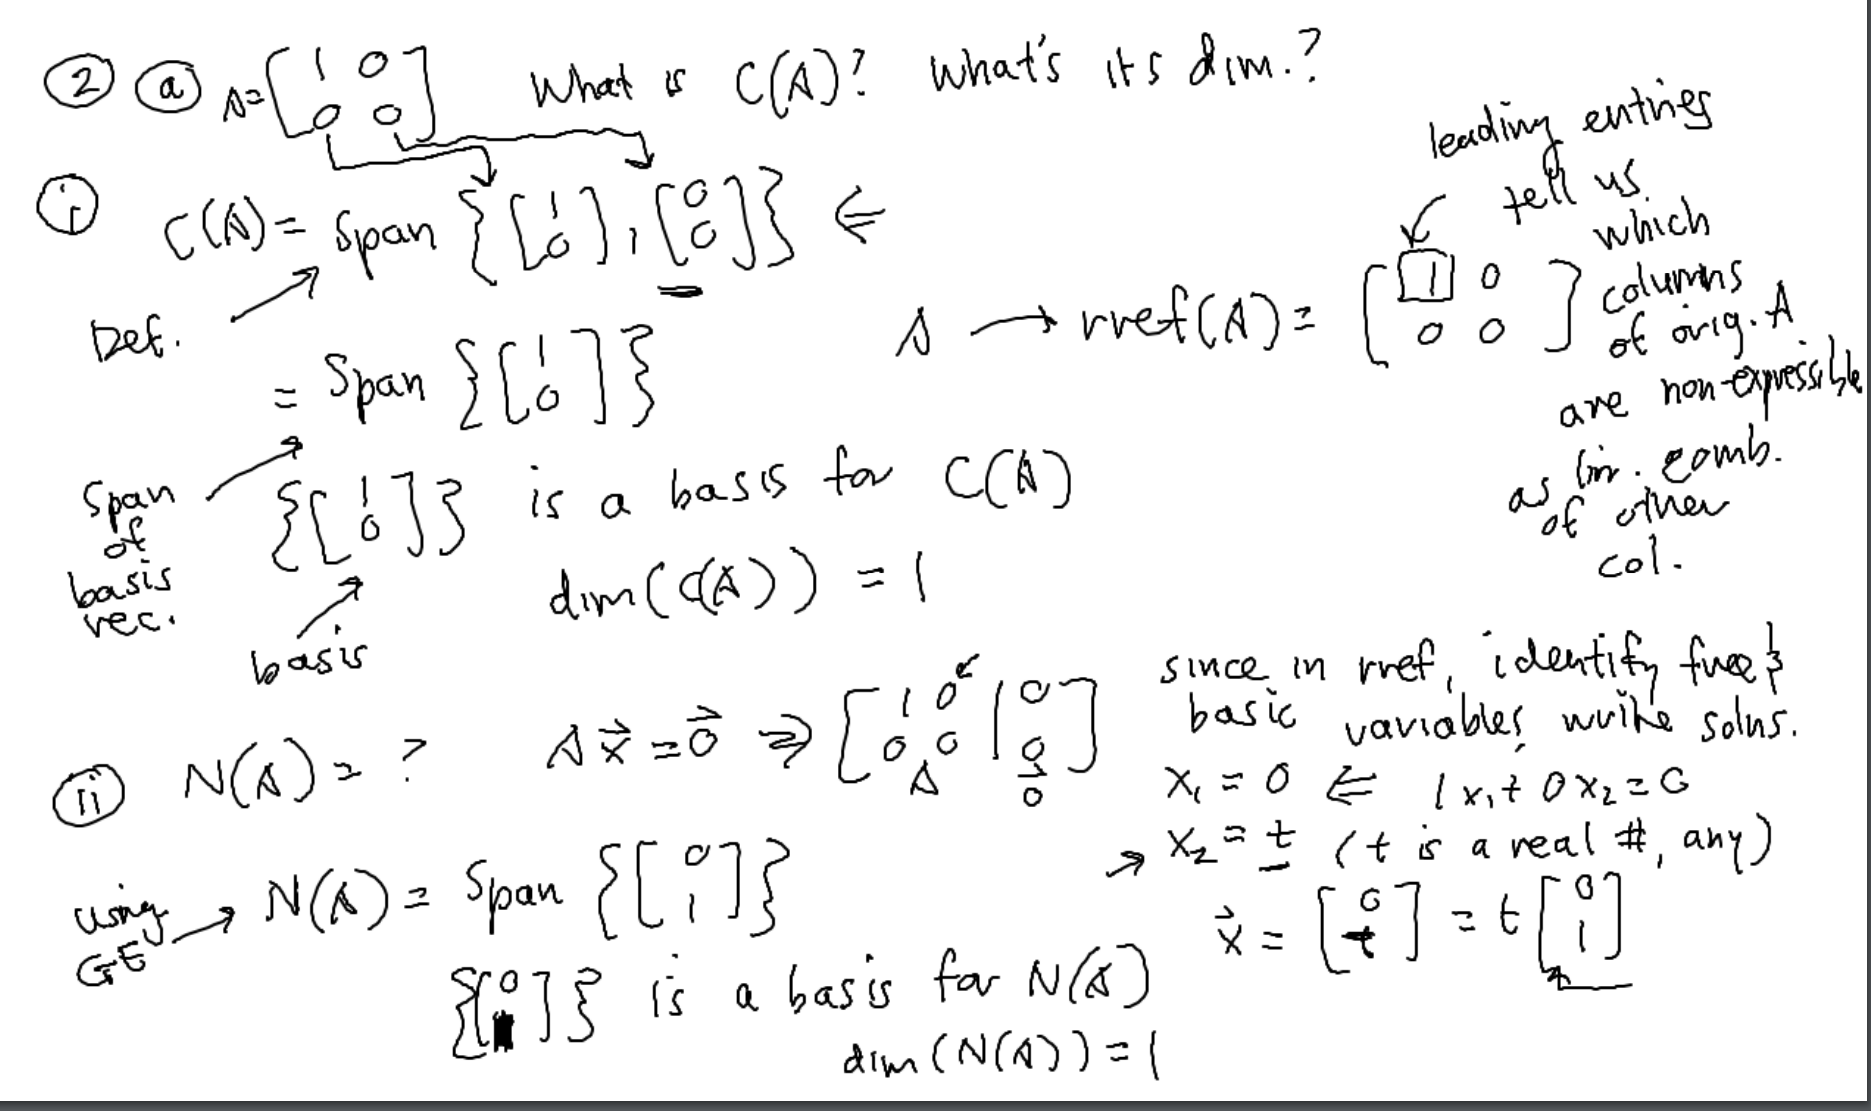 ② ⓐ A = [1 0; 0 0] What is C(A)? What's its dim.?
ⓘ C(A) = Span {[1; 0], [0; 0]} ⇐
Def.
= Span {[1; 0]}
Span of basis vec.
{[1; 0]} is a basis for C(A)
basis
dim(C(A)) = 1
A → rref(A) = [1 0; 0 0]
leading entries
tell us
which
columns
of orig. A
are non-expressible
as lin. comb.
of other
col.
(ii) N(A) = ? Ax⃗ = 0⃗ ⇒ [1 0 | 0; 0 0 | 0]
A 0⃗
since in rref, identify free &
basic variables, write solns.
x₁ = 0 ⇐ 1x₁ + 0x₂ = 0
→ x₂ = t (t is a real #, any)
x⃗ = [0; t] = t[0; 1]
using GE → N(A) = Span {[0; 1]}
{[0; 1]} is a basis for N(A)
dim(N(A)) = 1